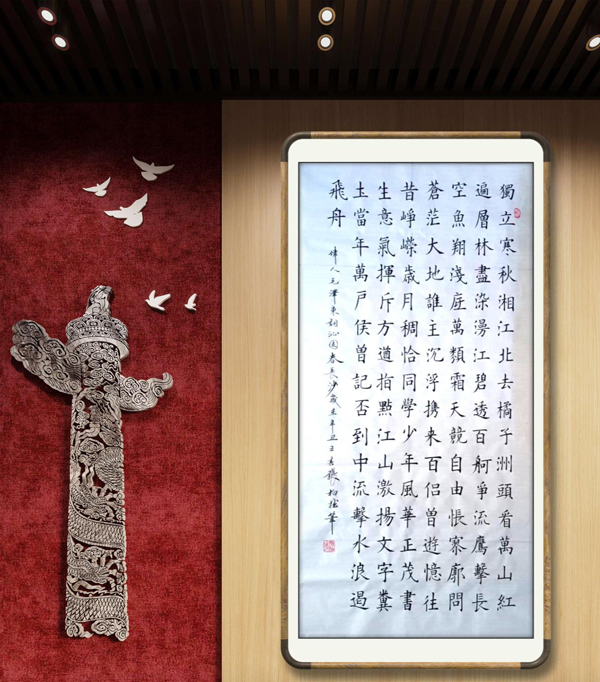 獨立寒秋湘江北去橘子洲頭看萬山紅
遍層林盡染漫江碧透百舸爭流鷹擊長
空魚翔淺底萬類霜天競自由悵寥廓問
蒼茫大地誰主沉浮携来百侣曾遊憶往
昔崢嶸歲月稠恰同學少年風華正茂書
生意氣揮斥方遒指點江山激揚文字糞
土當年萬戶侯曾記否到中流擊水浪遏
飛舟
偉人毛澤東詞沁園春長沙歲